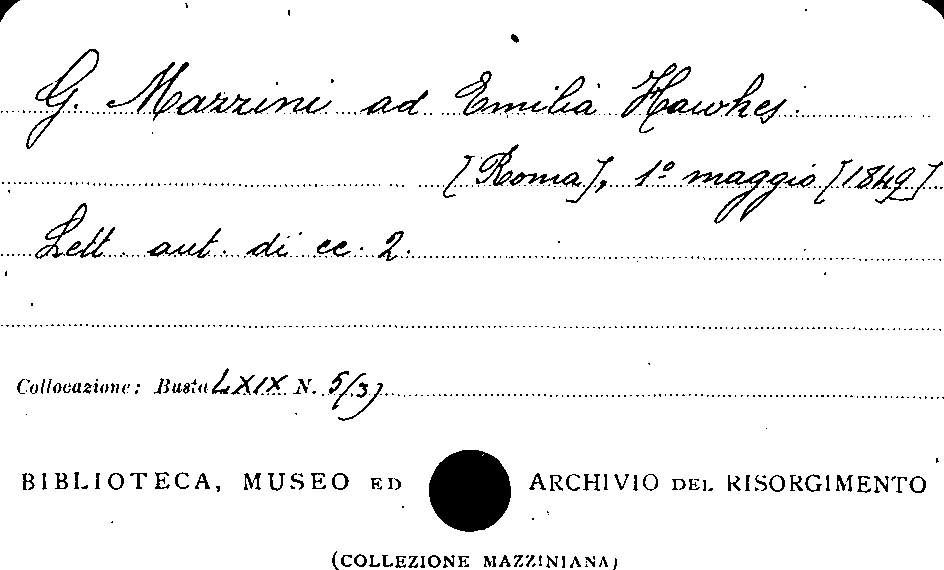 G. Mazzini ad Emilia Hawkes.
[Roma], 1º maggio [1849]
Lett. aut. di cc. 2.
Collocazione: Busta LXIX N. 5/3)
BIBLIOTECA, MUSEO ED ARCHIVIO DEL RISORGIMENTO
(COLLEZIONE MAZZINIANA)